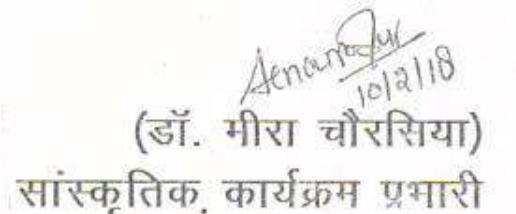 10/2/18
(डॉ. मीरा चौरसिया)
सांस्कृतिक कार्यक्रम प्रभारी